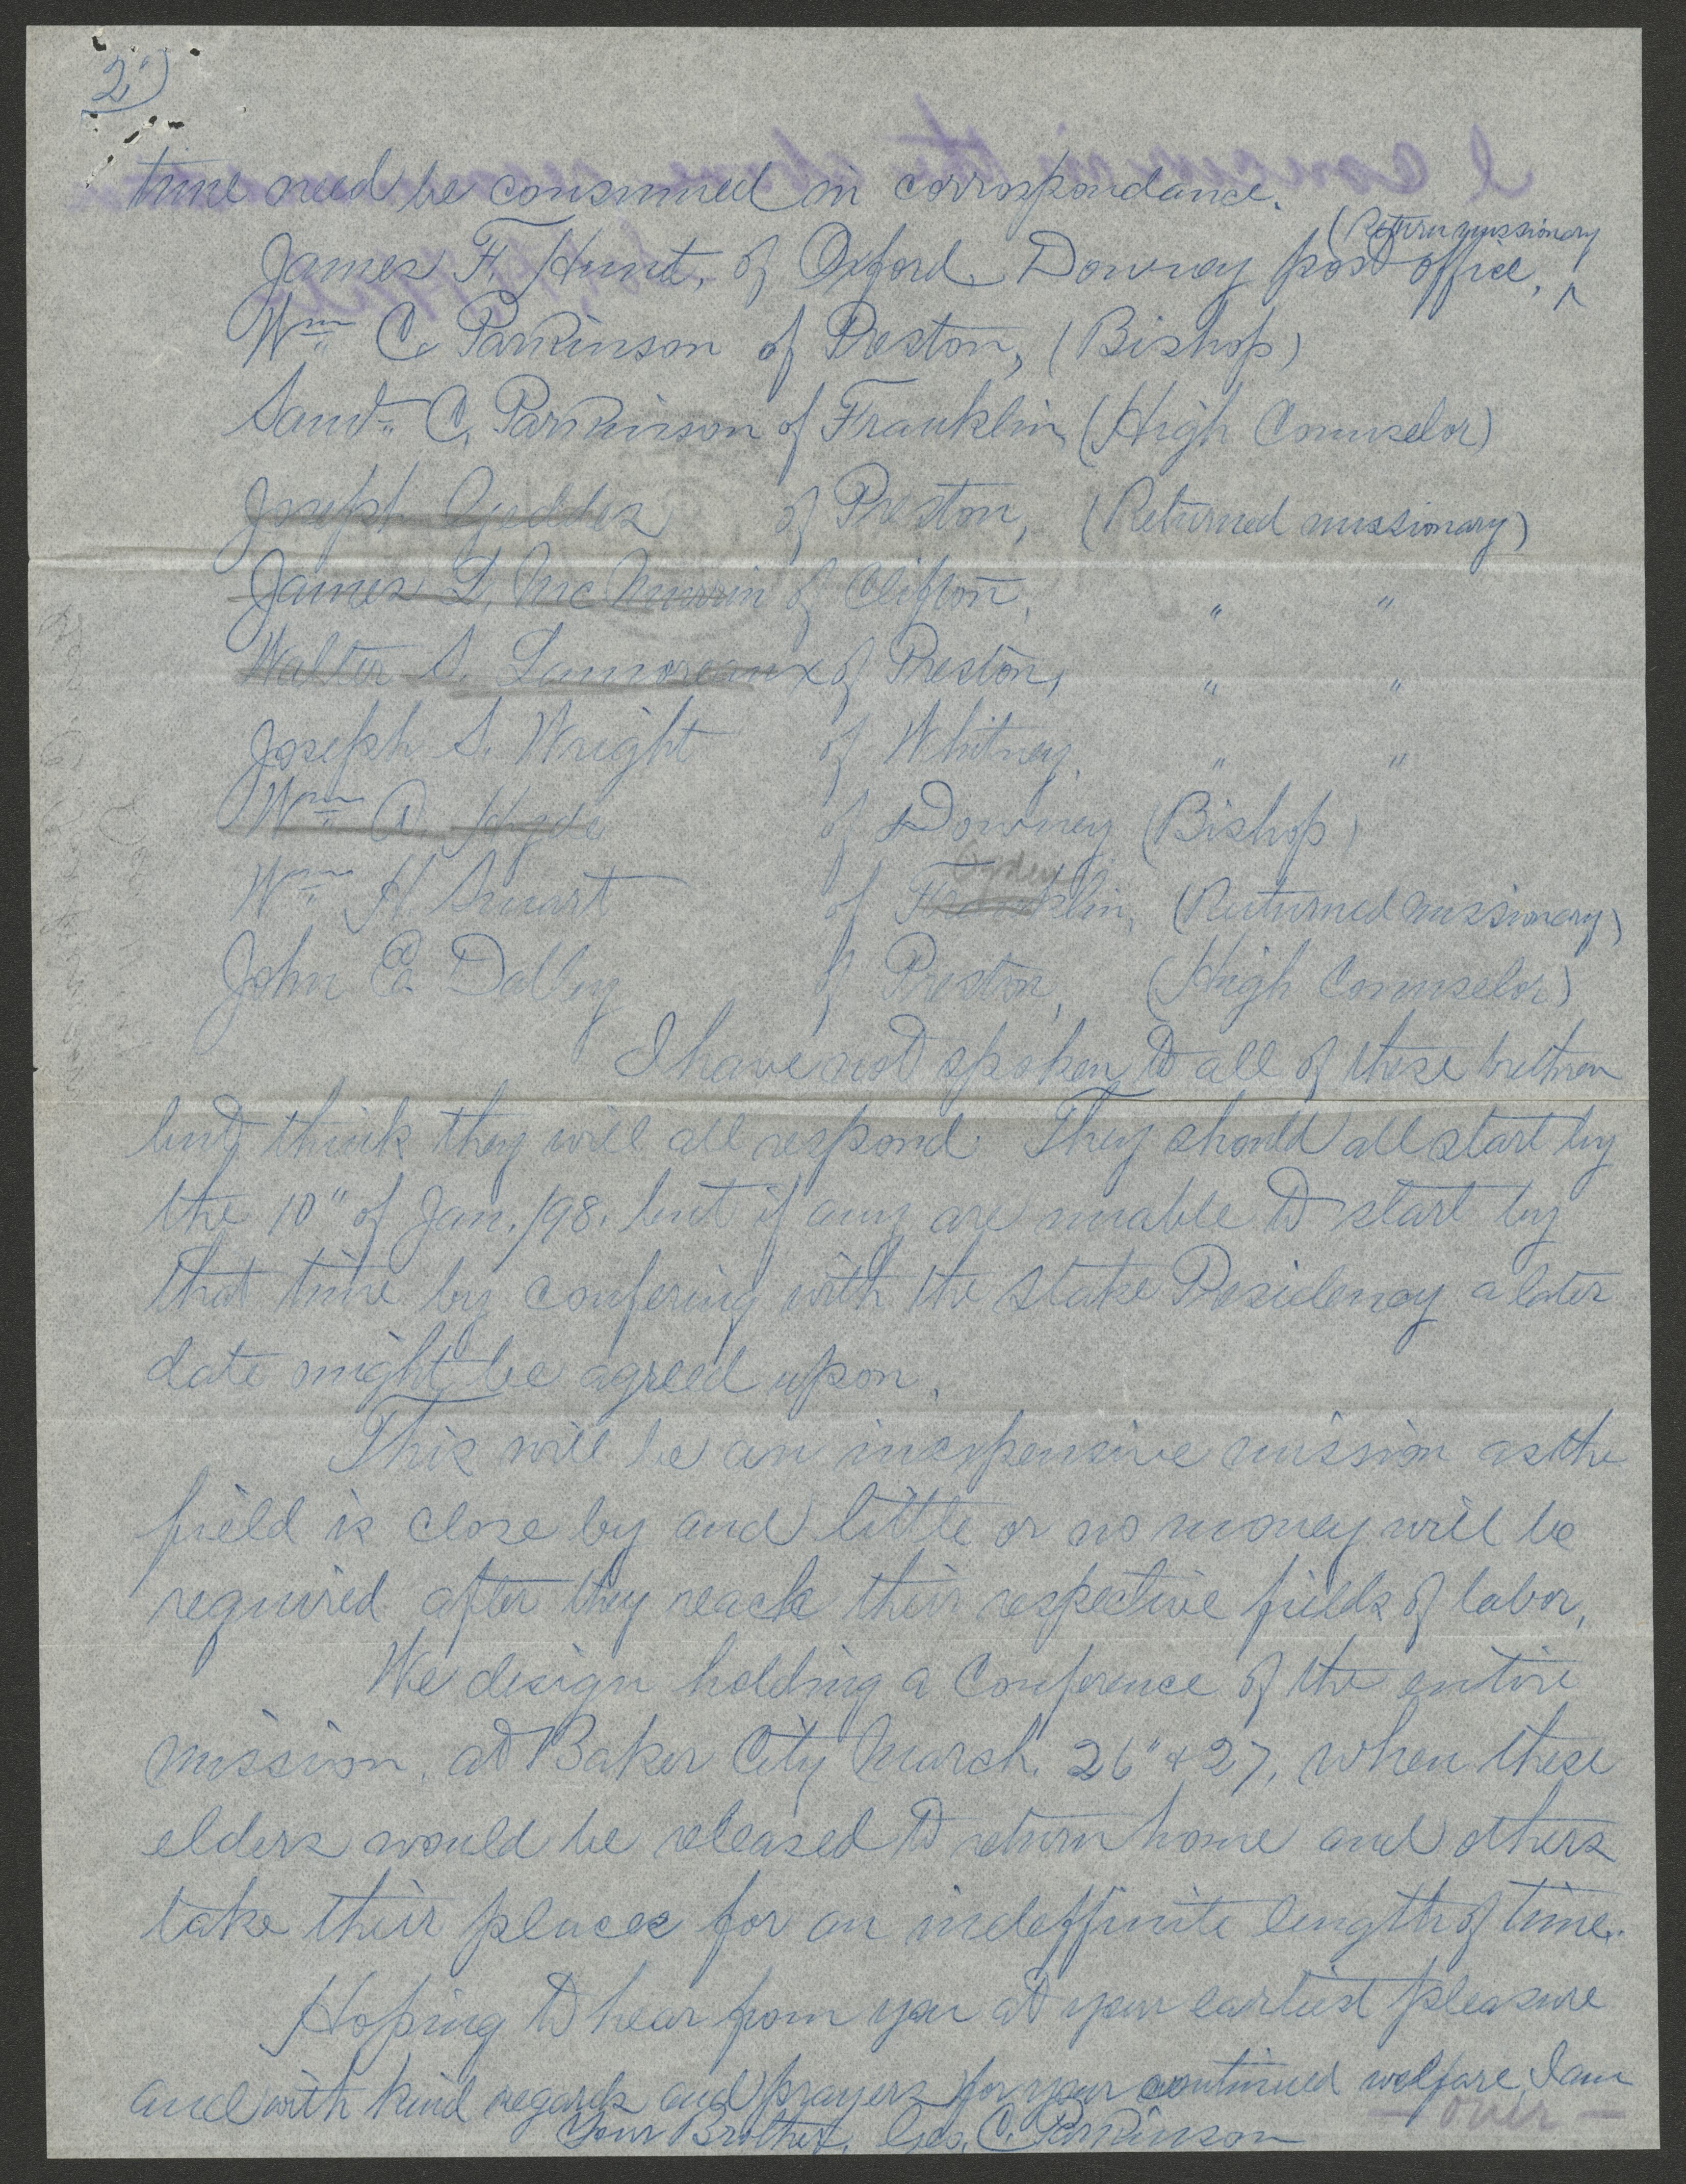 2")
time need be consumed in corrospondance.
James F. Hunt, of Oxford Downey post office, ^ (Return missionary
Wm C. Parkinson of Preston, (Bishop)
Saml. C. Parkinson of Franklin (High Counselor)
Joseph Geddes of Preston, (Returned missionary)
James L. McMurrin of Clifton, " "
Walter S. Lamoreaux of Preston, " "
Joseph S. Wright of Whitney. " "
Wm A. Hyde of Downey (Bishop)
Wm H Smart of Franklin, Ogden (Returned missionary)
John E. Dalley of Preston, (High Counselor)
I have not spoken to all of these brethren
but think they will all respond. They should all start by
the 10" of Jan. /98. but if any are unable to start by
that time by confering with the stake Presidency a later
date might be agreed upon.
This will be an inexpensive mission as the
field is close by and little or no money will be
required after they reach their respective fields of labor.
We design holding a Conference of the entire
mission, at Baker City March. 26" & 27, when these
elders would be released to return home and others
take their places for an indeffinite length of time.
Hoping to hear from you at your earliest pleasure
and with kind regards and prayers for your continued welfare I am
Your Brother. Geo. C. Parkinson
— over —